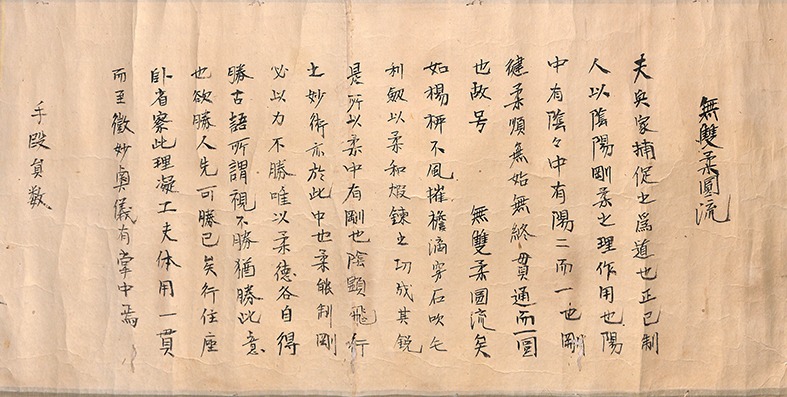 無雙柔圓流
夫兵家捕促之為道也正己制
人以陰陽剛柔之理作用也陽
中有陰々中有陽二而一也剛
健柔順無始無終貫通而一圓
也故号 無雙柔圓流矣
如楊枅不風摧檐滴穿石吹毛
利劔以柔和煅鍊之功成其鋭
是所以柔中有剛也陰顕飛行
之妙術亦於此中也柔能制剛
必以力不勝唯以柔德各自得
勝古語所謂視不勝猶勝此意
也欲勝人先可勝己矣行住座
卧省察此理凝工夫体用一貫
而至微妙奥儀有掌中焉
手段員数